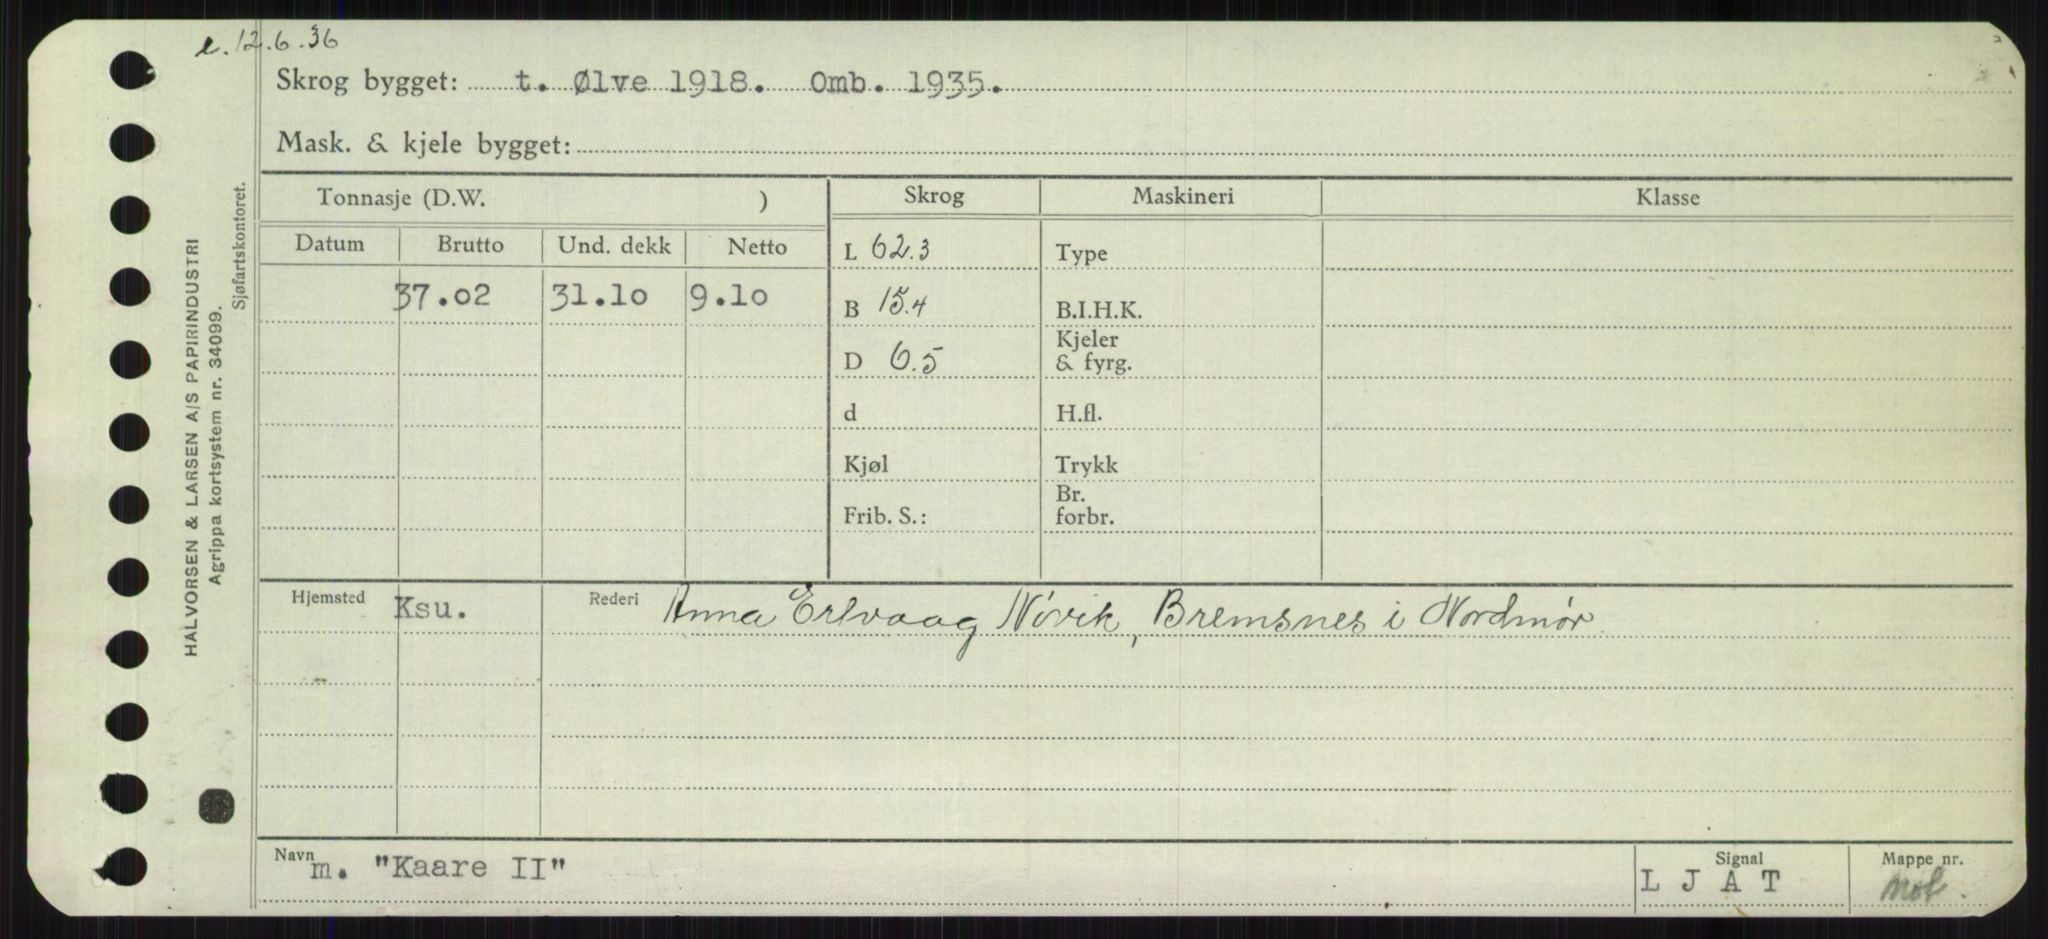 e. 12.6.36
Skrog bygget: t. Ølve 1918. Omb. 1935.
Mask. & kjele bygget:
HALVORSEN & LARSEN A/S PAPIRINDUSTRI
Agrippa kortsystem nr. 34099.
Sjøfartskontoret.
Tonnasje (D.W. ) Skrog Maskineri Klasse
Datum Brutto Und. dekk Netto
L 62.3 Type
37.02 31.10 9.10
B 15.4 B.I.H.K.
D 6.5 Kjeler & fyrg.
d H.fl.
Kjøl Trykk
Frib. S.: Br. forbr.
Hjemsted Ksu. Rederi Anna Erlvaag Növik, Bremsnes i Nordmør
Navn m. "Kaare II" Signal L J A T Mappe nr.